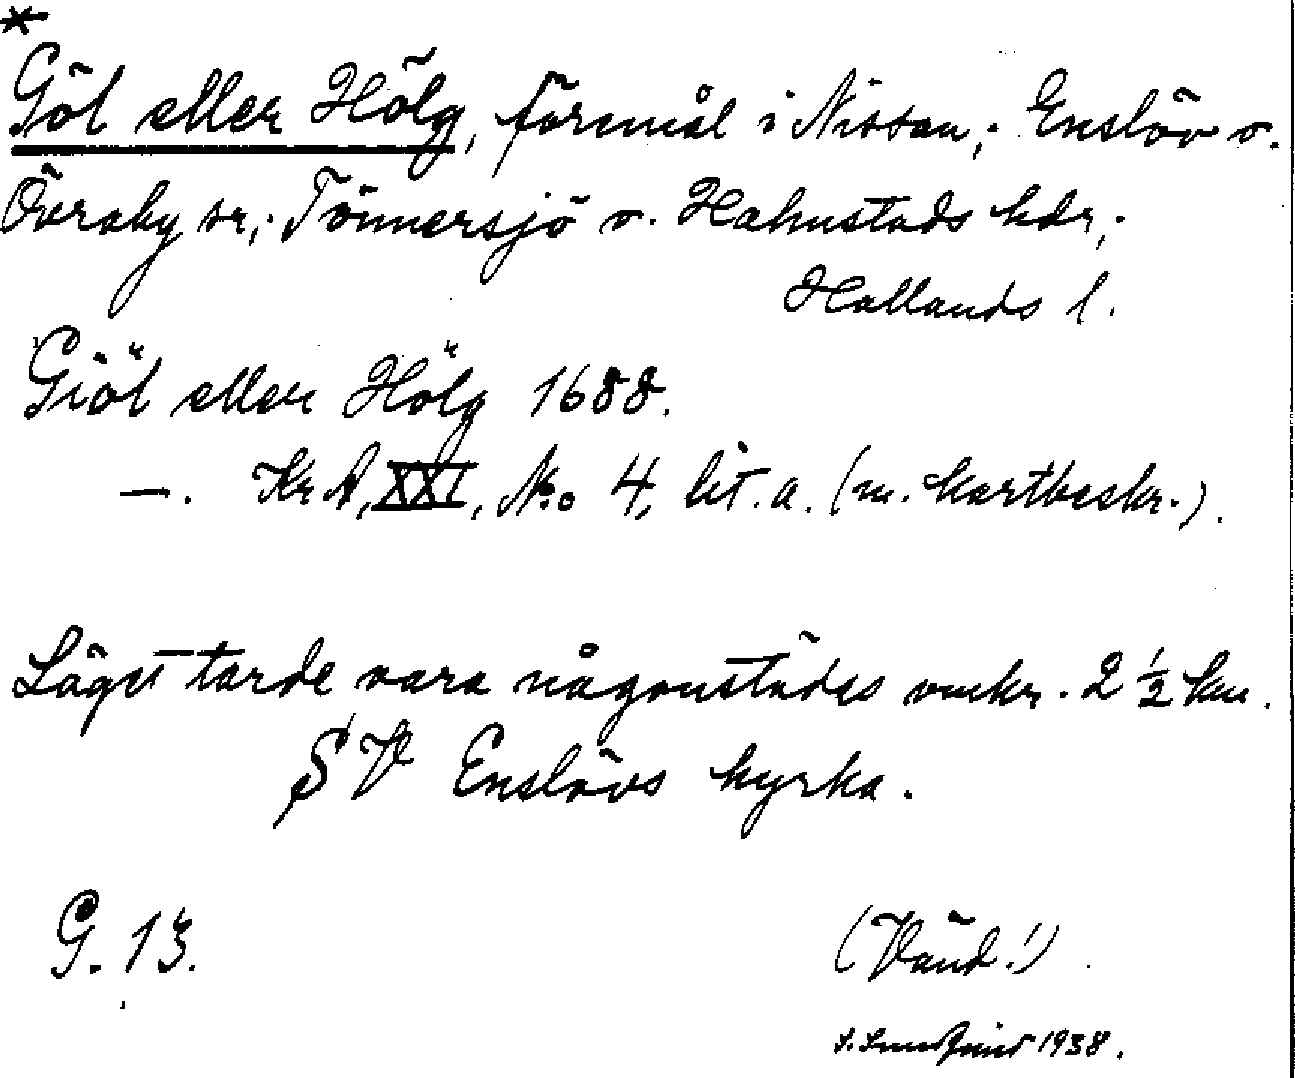 *
Göl eller Hölg, föremål i Nissan; Enslöv o.
Övraby sr; Tönnersjö o. Halmstads hdr;
Hallands l.
Giöl eller Hölg 1688.
—. Kr A, XXI, No 4, lit. a. (m. kartbeskr.).
Läget torde vara någonstädes omkr. 2 ½ km.
SV Enslövs kyrka.
G. 13.
(Vänd!)
1938.